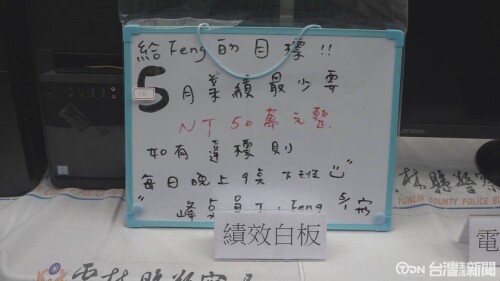 給Feng的目標!!
5月業績最少要
NT 50萬元整
如有達標則
每日晚上9點下班
峰
員工:Feng
績效白板
電
YUNLIN COUNTY POLICE
林縣警察
TDN台灣新聞
lenovo